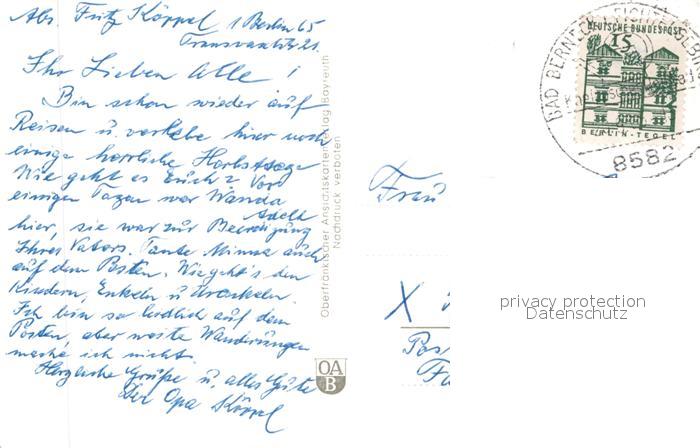 Abs. Fritz Köppel 1 Berlin 65
Transvaalstr. 21
Ihr Lieben Alle!
Bin schon wieder auf
Reisen u. verlebe hier noch
einige herrliche Herbsttage
Wie geht es Euch? Vor
einigen Tagen war Wanda
Adelh
hier, sie war zur Beerdigung
Ihres Vaters. Tante Minna auch
auf dem Posten. Wie geht's den
Kindern, Enkeln u.
Ich bin so leidlich auf dem
Posten, aber weite Wanderungen
mache ich nicht.
Herzliche Grüße u. alles Gute
Der Opa Köppel
Oberfränkischer Ansichtskartenverlag Bayreuth
Nachdruck verboten
OA
B
BAD BERNECK I. FICHTELGEBIR
8582
DEUTSCHE BUNDESPOST
15
BERLIN-TEGEL
Frau
X
Pos
privacy protection
Datenschutz